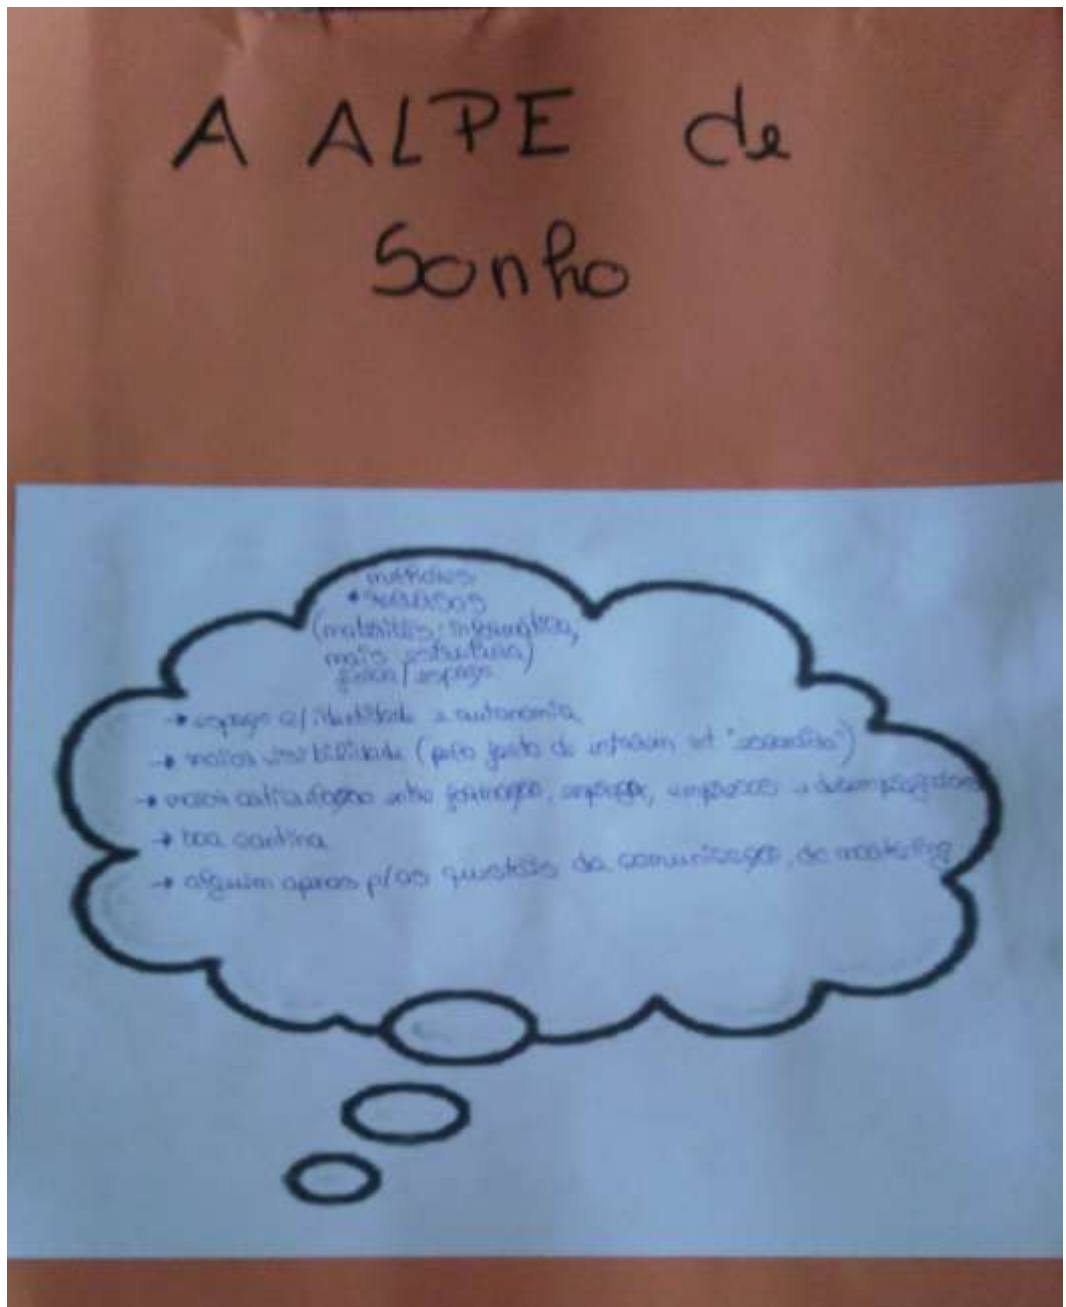 A ALPE de
Sonho
melhores
• recursos
(materiais, informática,
mais estrutura)
física/espaço
→ espaço c/identidade e autonomia
→ maior visibilidade (pelo facto de
→ maior entre formação, emprego, empresas e desempregados
→ boa cantina
→ alguém apenas p/as questões da comunicação, do marketing